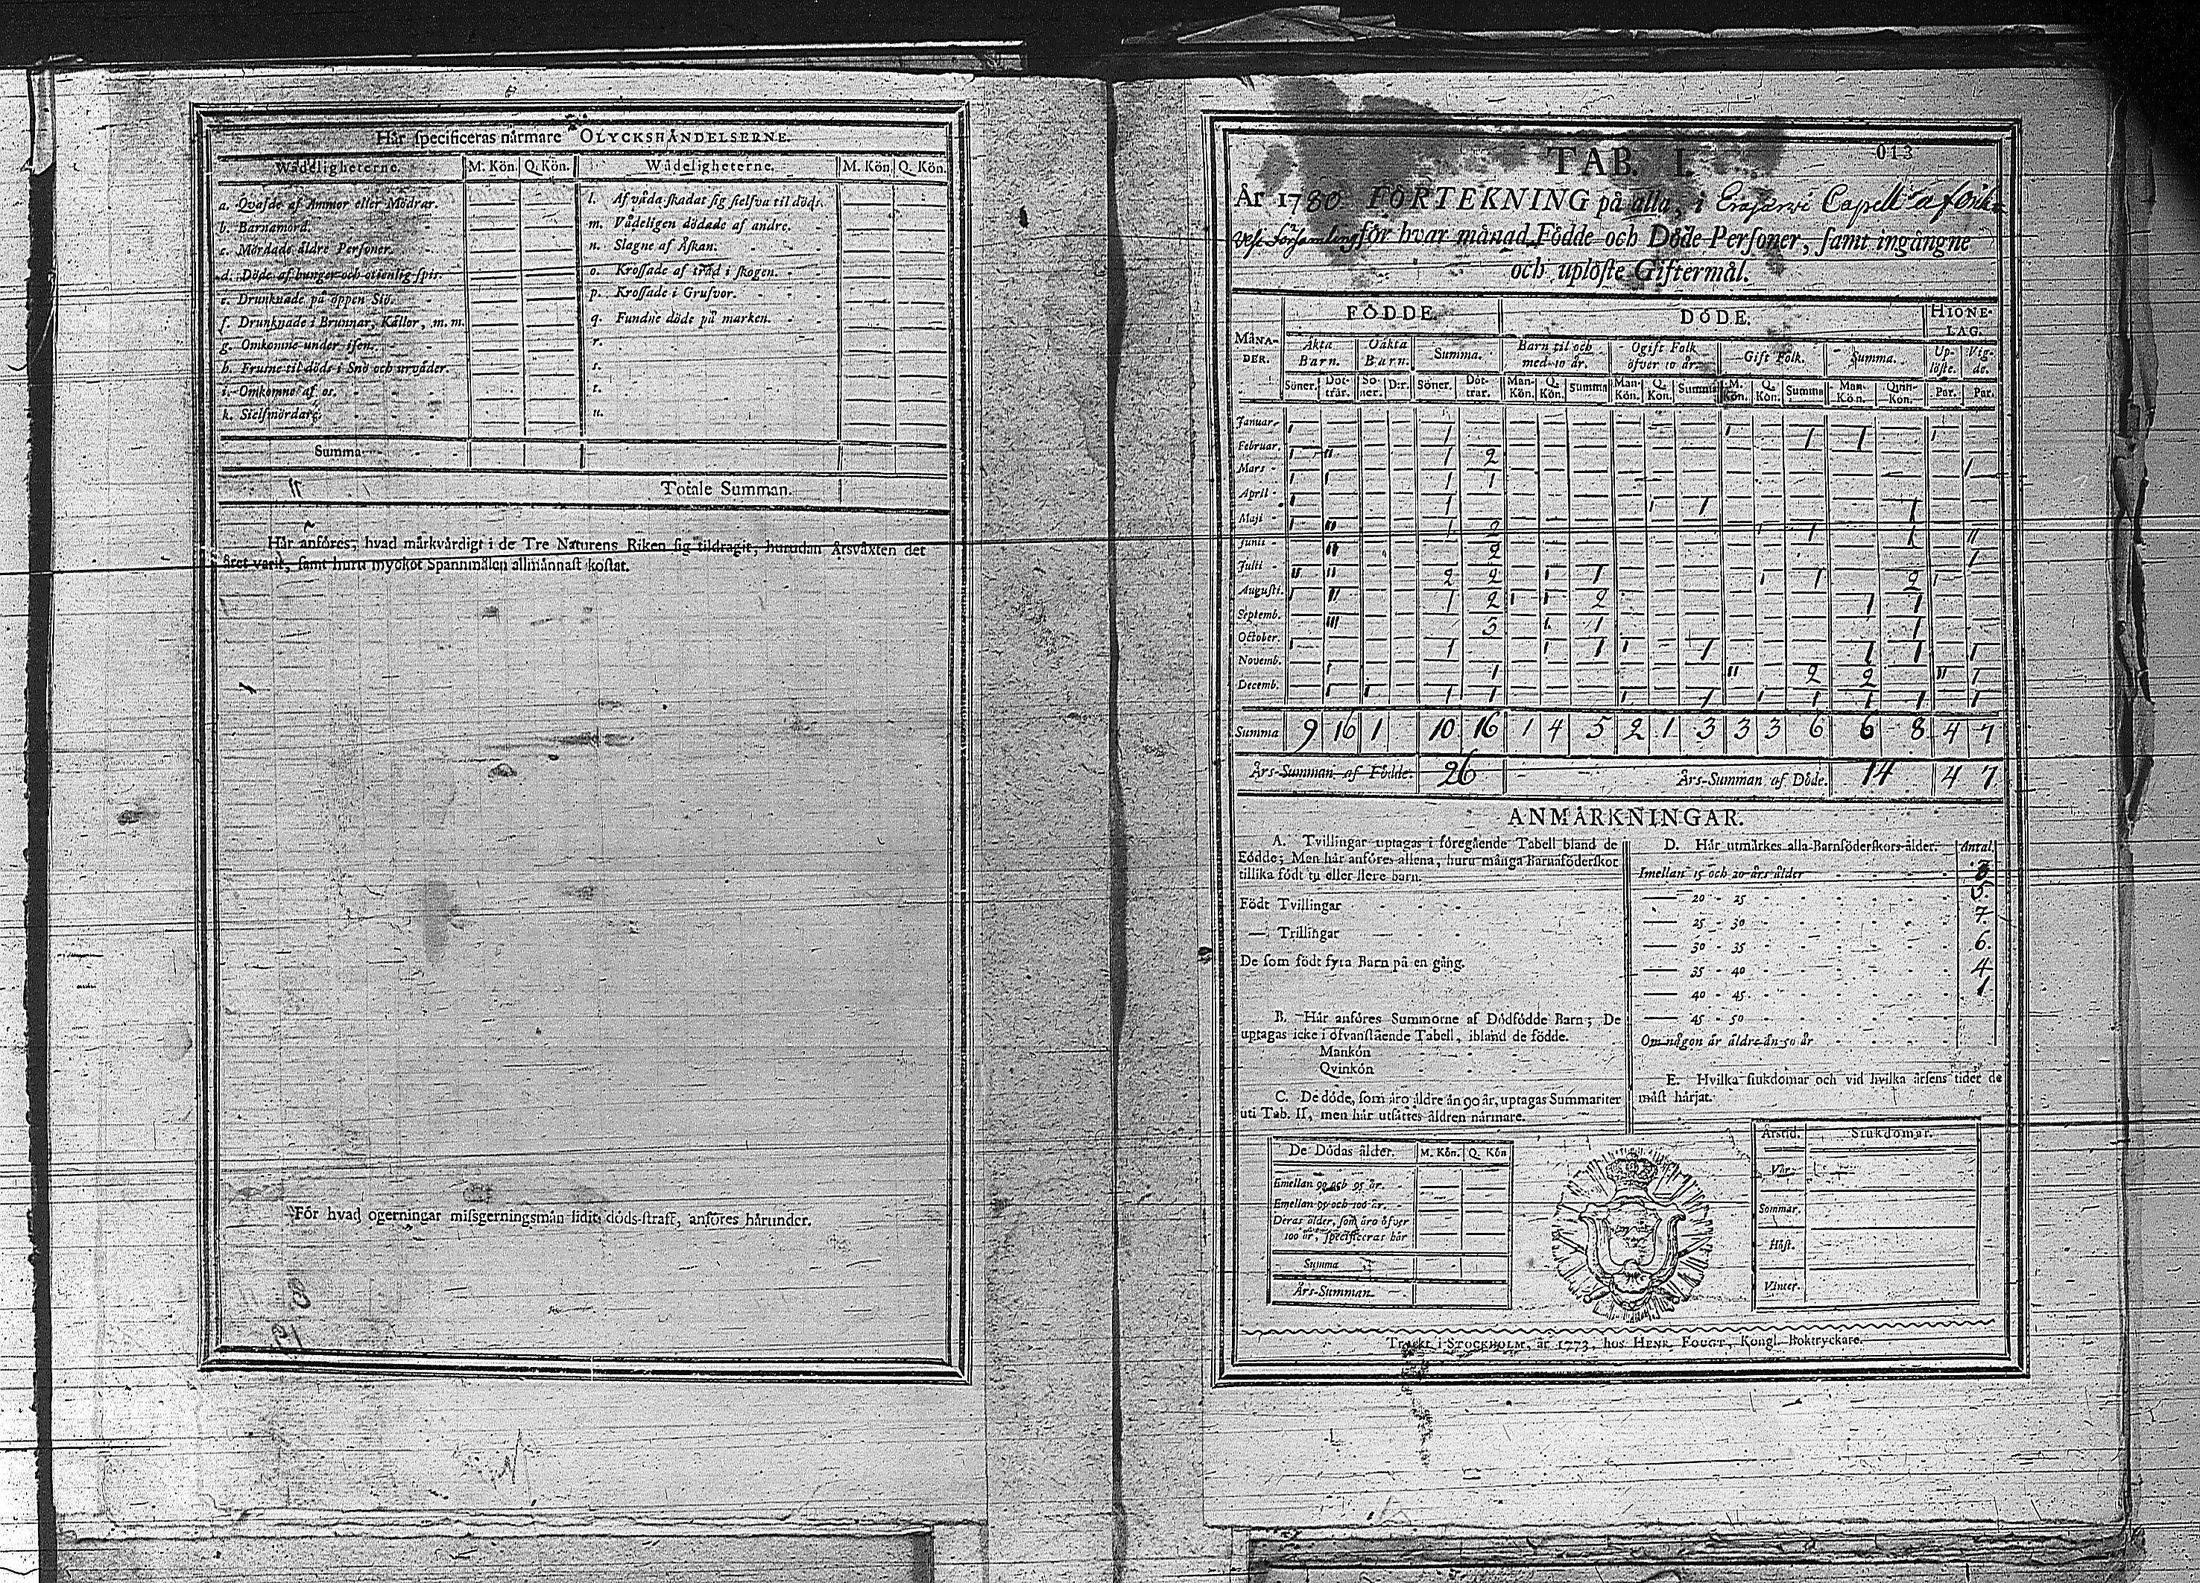 Här specificeras närmare OLYCKSHÄNDELSERNE.
Wådeligheterne. M. Kön. Q. Kön. Wådeligheterne. M. Kön. Q. Kön.
a. Qvafde af Ammor eller Mödrar. l. Af våda skadat sig sielfva til döds.
b. Barnamord. m. Vådeligen dödade af andre.
c. Mördade äldre Personer. n. Slagne af Åskan.
d. Döde af hunger och otienlig spis. o. Krossade af träd i skogen.
e. Drunknade på öppen Siö. p. Krossade i Grufvor.
f. Drunknade i Brunnar, Källor, m. m. q. Fundne döde på marken.
g. Omkomne under isen. r.
h. Frusne til döds i Snö och urväder. s.
i. Omkomne af os. t.
k. Sielfmördare. u.
Summa
Totale Summan.
Här anföres, hvad märkvärdigt i de Tre Naturens Riken sig tildragit, hurudan Årsväxten det
året varit, samt huru myckot Spannmålen allmännast kostat.
För hvad ogerningar missgerningsmän lidit döds-straff, anföres härunder.
013
TAB. I.
År 1780 FÖRTEKNING på alla, i Erajärvi Capell af
Församling för hvar månad Födde och Döde Personer, samt ingångne
och uplöste Giftermål.
MÅNADER. FÖDDE. DÖDE. HIONELAG.
Äkta Barn. Oäkta Barn. Summa. Barn til och med 10 år. Ogift Folk öfver 10 år. Gift Folk. Summa. Uplöste. Vigde.
Söner. Dottrar. Söner. D:r. Söner. Dottrar. Man-Kön. Q. Kön. Summa Man-Kön. Q. Kön. Summa M. Kön. Q. Kön. Summa Man-Kön. Qvin-Kön. Par. Par.
Januar. ı 1 ı 1 1 ı
Februar. ı ıı 1 2 1
Mars ı ı 1 1
April ı 1 1
Maji ı ıı 1 2 ı 1 1 ıı
Junii ıı 2 1
Julii ıı ıı 2 2 ı 1 ı 1 2 ı
Augusti. ı ıı 1 2 ı ı 2 1 1
Septemb. ııı 3 ı 1 1
October. ı 1 ı 1 ı 1 1 1 1
Novemb. ı 1 ıı 2 2 ıı 1
Decemb. ı ı 1 1 ı 1 ı 1 1 1 1
Summa 9 16 1 10 16 1 4 5 2 1 3 3 3 6 6 8 4 7
Års-Summan af Födde. 26 Års-Summan af Döde. 14 4 7
ANMÄRKNINGAR.
A. Tvillingar uptagas i föregående Tabell bland de
Födde; Men här anföres allena, huru många Barnaföderskor
tillika födt tu eller flere barn.
Födt Tvillingar
— Trillingar
De som födt fyra Barn på en gång.
B. Här anföres Summorne af Dödfödde Barn; De
uptagas icke i ofvanstående Tabell, ibland de födde.
Mankön
Qvinkön
C. De döde, som äro äldre än 90 år, uptagas Summariter
uti Tab. II, men här utsättes åldren närmare.
De Dödas ålder. M. Kön. Q. Kön
Emellan 90 och 95 år.
Emellan 95 och 100 år.
Deras ålder, som äro öfver
100 år, specificeras här
Summa
Års-Summan
D. Här utmärkes alla Barnföderskors ålder. Antal
Imellan 15 och 20 års ålder 3
— 20 - 25 5.
— 25 - 30 7.
— 30 - 35 6.
— 35 - 40 4
— 40 - 45 1
— 45 - 50
Om någon är äldre än 50 år
E. Hvilka siukdomar och vid hvilka årsens tider de
mäst härjat.
Årstid. Siukdomar.
Vår.
Sommar.
Höst.
Vinter.
Tryckt i STOCKHOLM, år 1773, hos HENR. FOUGT, Kongl. Boktryckare.